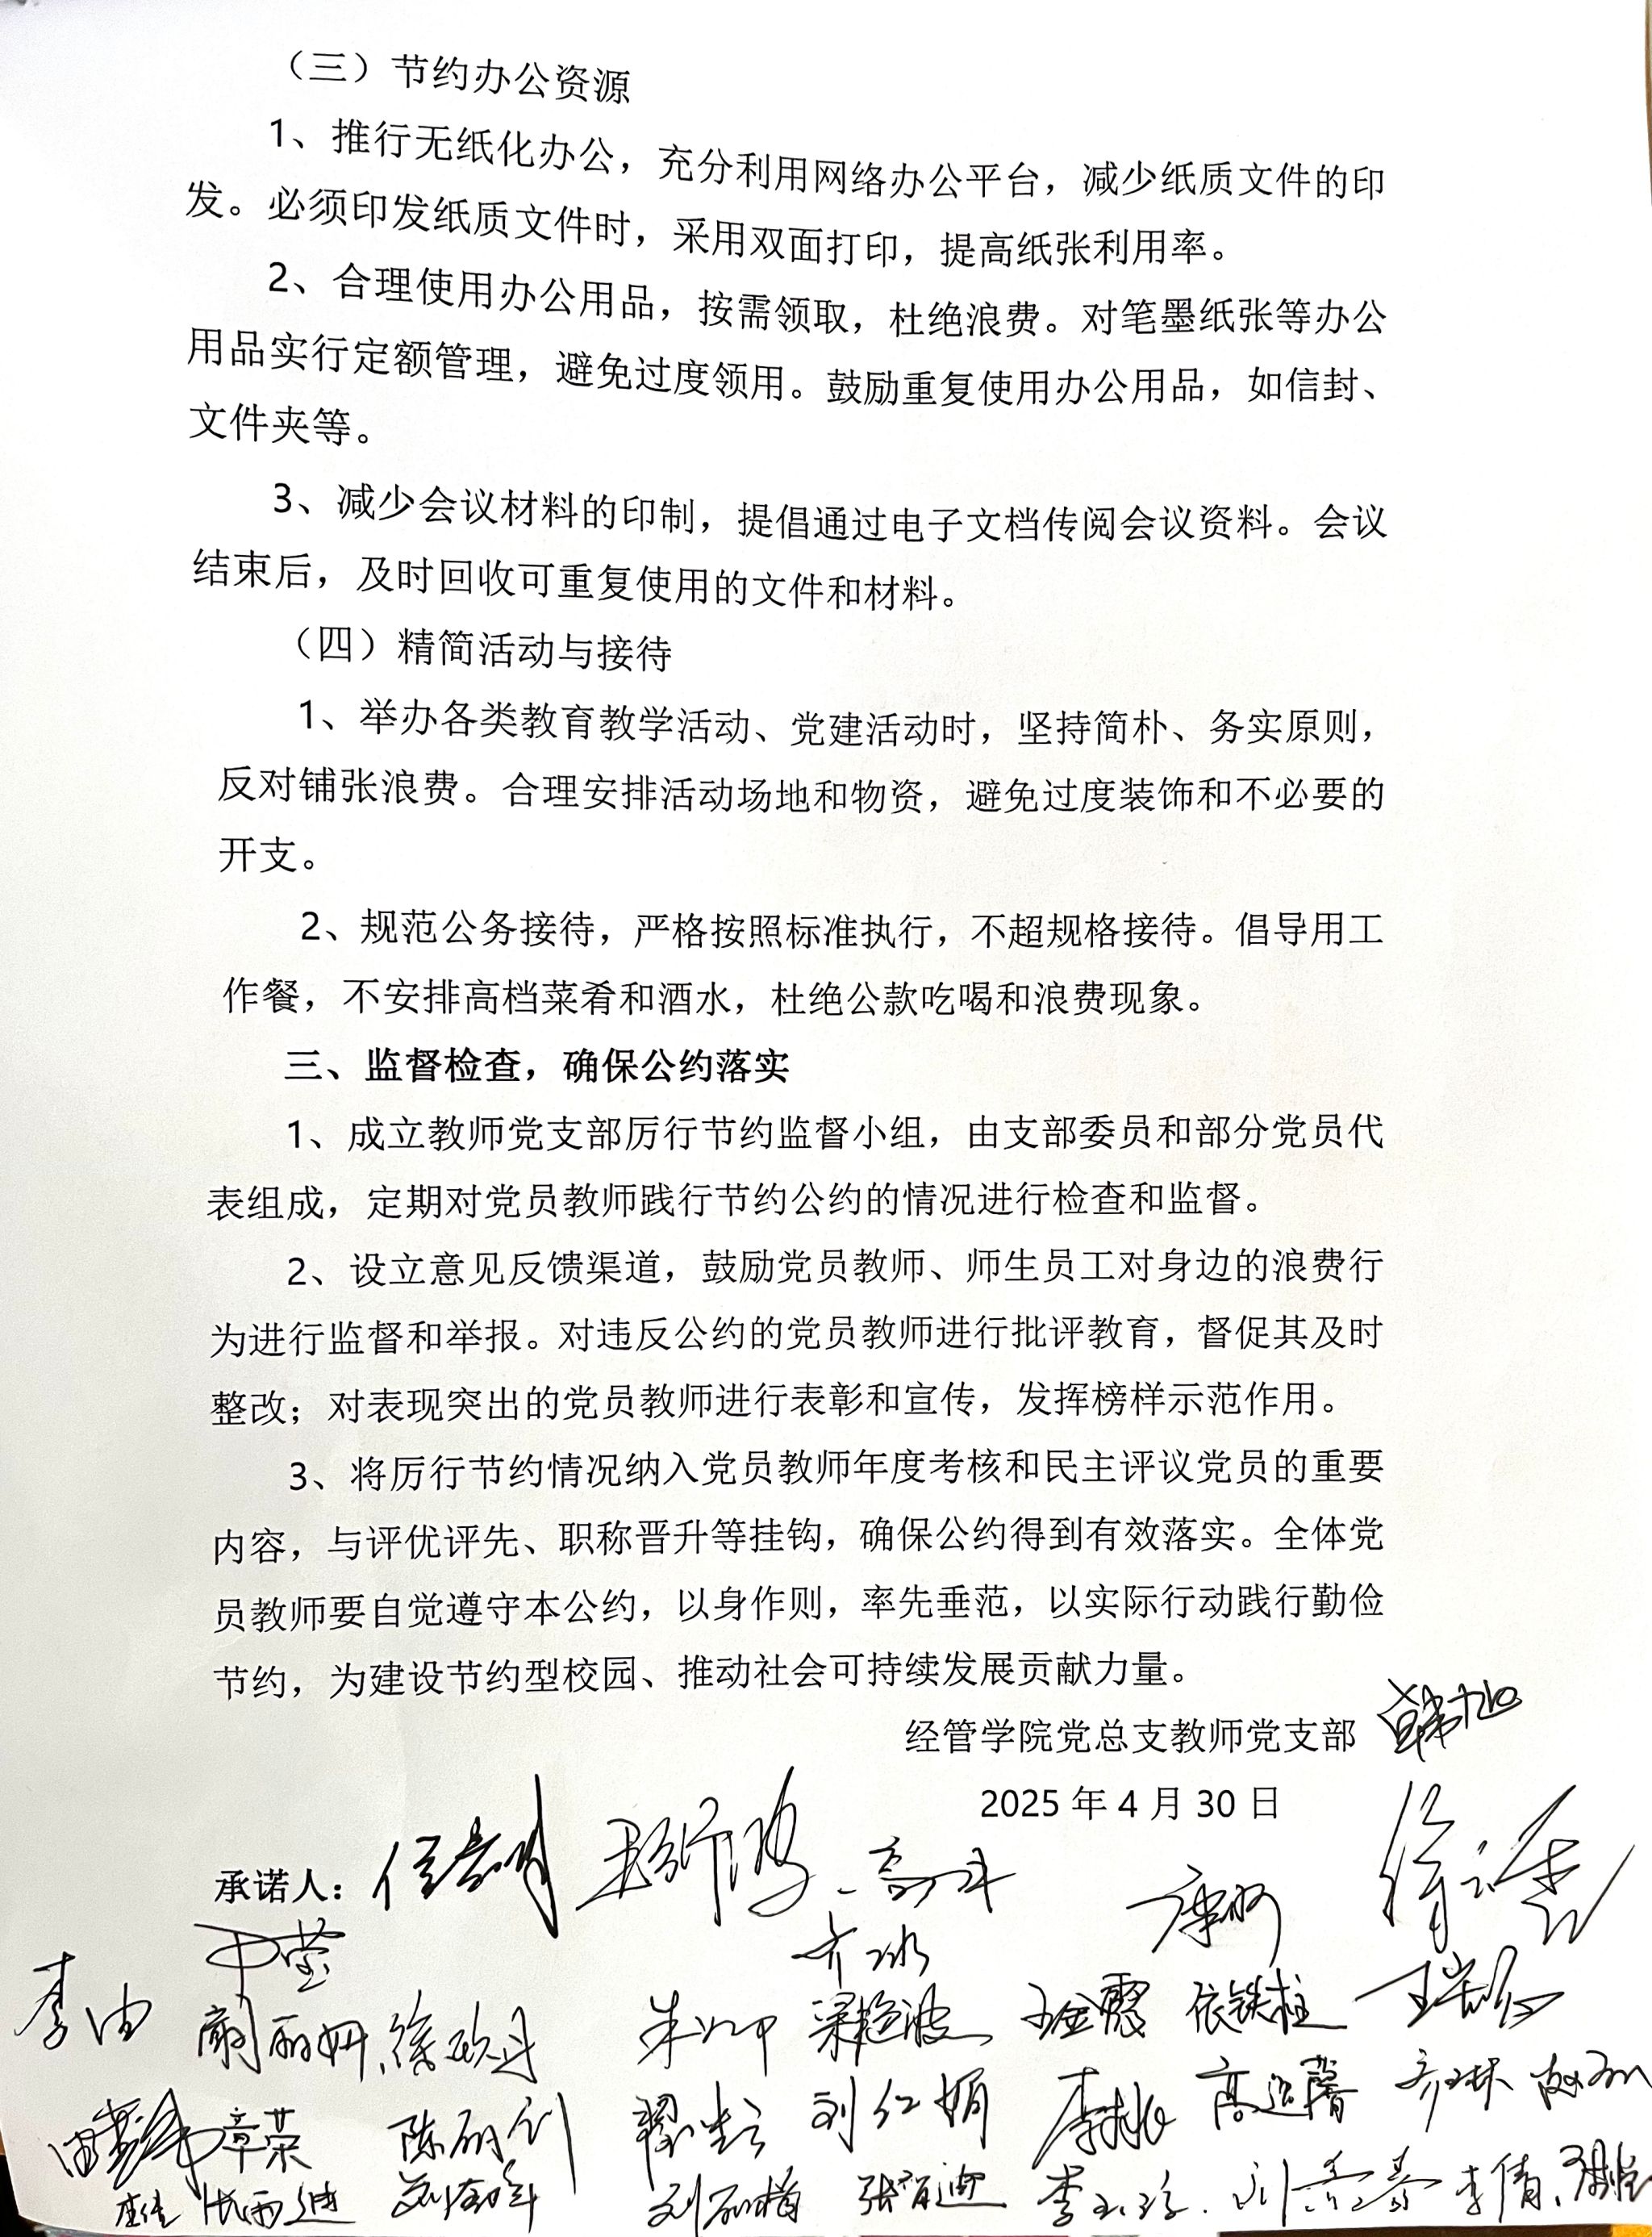 （三）节约办公资源
1、推行无纸化办公，充分利用网络办公平台，减少纸质文件的印
发。必须印发纸质文件时，采用双面打印，提高纸张利用率。
2、合理使用办公用品，按需领取，杜绝浪费。对笔墨纸张等办公
用品实行定额管理，避免过度领用。鼓励重复使用办公用品，如信封、
文件夹等。
3、减少会议材料的印制，提倡通过电子文档传阅会议资料。会议
结束后，及时回收可重复使用的文件和材料。
（四）精简活动与接待
1、举办各类教育教学活动、党建活动时，坚持简朴、务实原则，
反对铺张浪费。合理安排活动场地和物资，避免过度装饰和不必要的
开支。
2、规范公务接待，严格按照标准执行，不超规格接待。倡导用工
作餐，不安排高档菜肴和酒水，杜绝公款吃喝和浪费现象。
三、监督检查，确保公约落实
1、成立教师党支部厉行节约监督小组，由支部委员和部分党员代
表组成，定期对党员教师践行节约公约的情况进行检查和监督。
2、设立意见反馈渠道，鼓励党员教师、师生员工对身边的浪费行
为进行监督和举报。对违反公约的党员教师进行批评教育，督促其及时
整改；对表现突出的党员教师进行表彰和宣传，发挥榜样示范作用。
3、将厉行节约情况纳入党员教师年度考核和民主评议党员的重要
内容，与评优评先、职称晋升等挂钩，确保公约得到有效落实。全体党
员教师要自觉遵守本公约，以身作则，率先垂范，以实际行动践行勤俭
节约，为建设节约型校园、推动社会可持续发展贡献力量。
经管学院党总支教师党支部 韩旭
2025 年 4 月 30 日
承诺人：
齐冰
梁艳波 依铁柱
章荣 刘仁娟
李倩